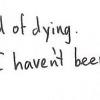 d of dying.
I haven't been